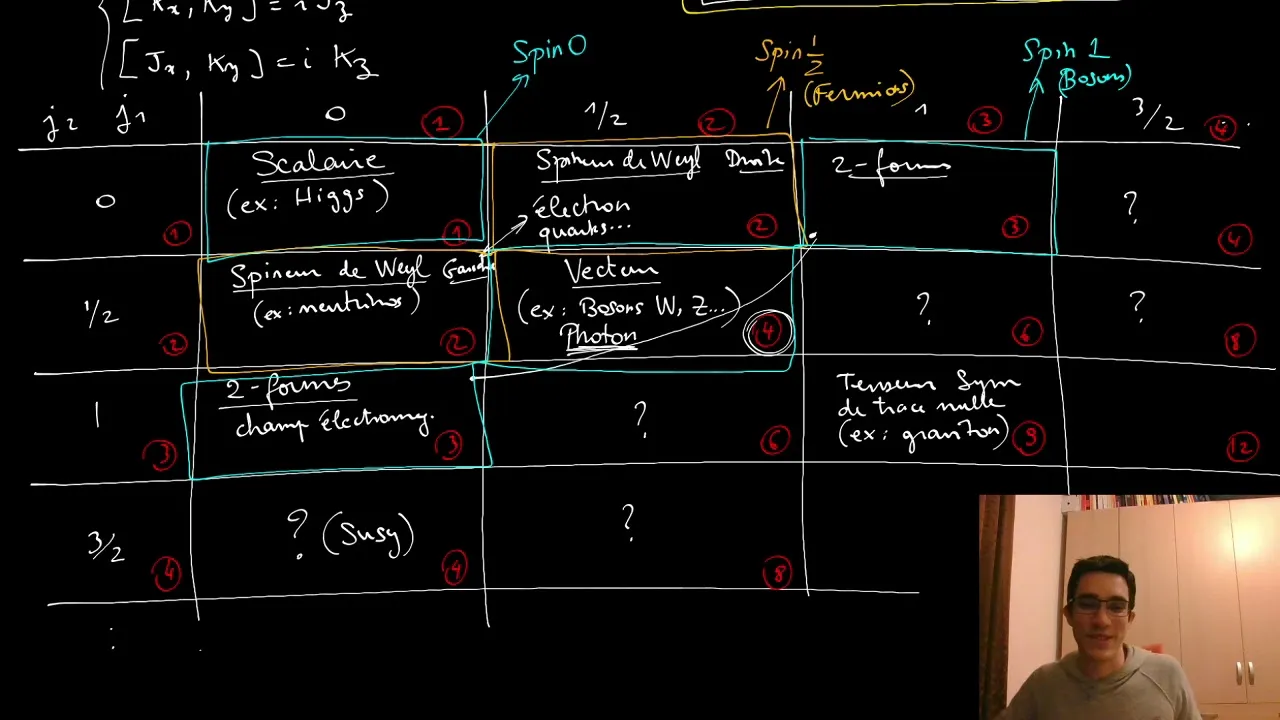 [Kx, Ky] = i Jz
[Jx, Ky] = i Kz
Spin 0
Spin 1/2
(Fermions)
Spin 1
(Bosons)
j2 j1
0 1
1/2 2
1 3
3/2 4
0 1
Scalaire
(ex: Higgs)
1
Spineur de Weyl Droite
électron
quarks...
2
2-formes
3
?
4
1/2 2
Spineur de Weyl Gauche
(ex: neutrinos)
2
Vecteur
(ex: Bosons W, Z...)
Photon
4
?
6
?
8
1 3
2-formes
champ électromag.
3
?
6
Tenseur Sym
de trace nulle
(ex: graviton)
9
12
3/2 4
? (Susy)
4
?
8